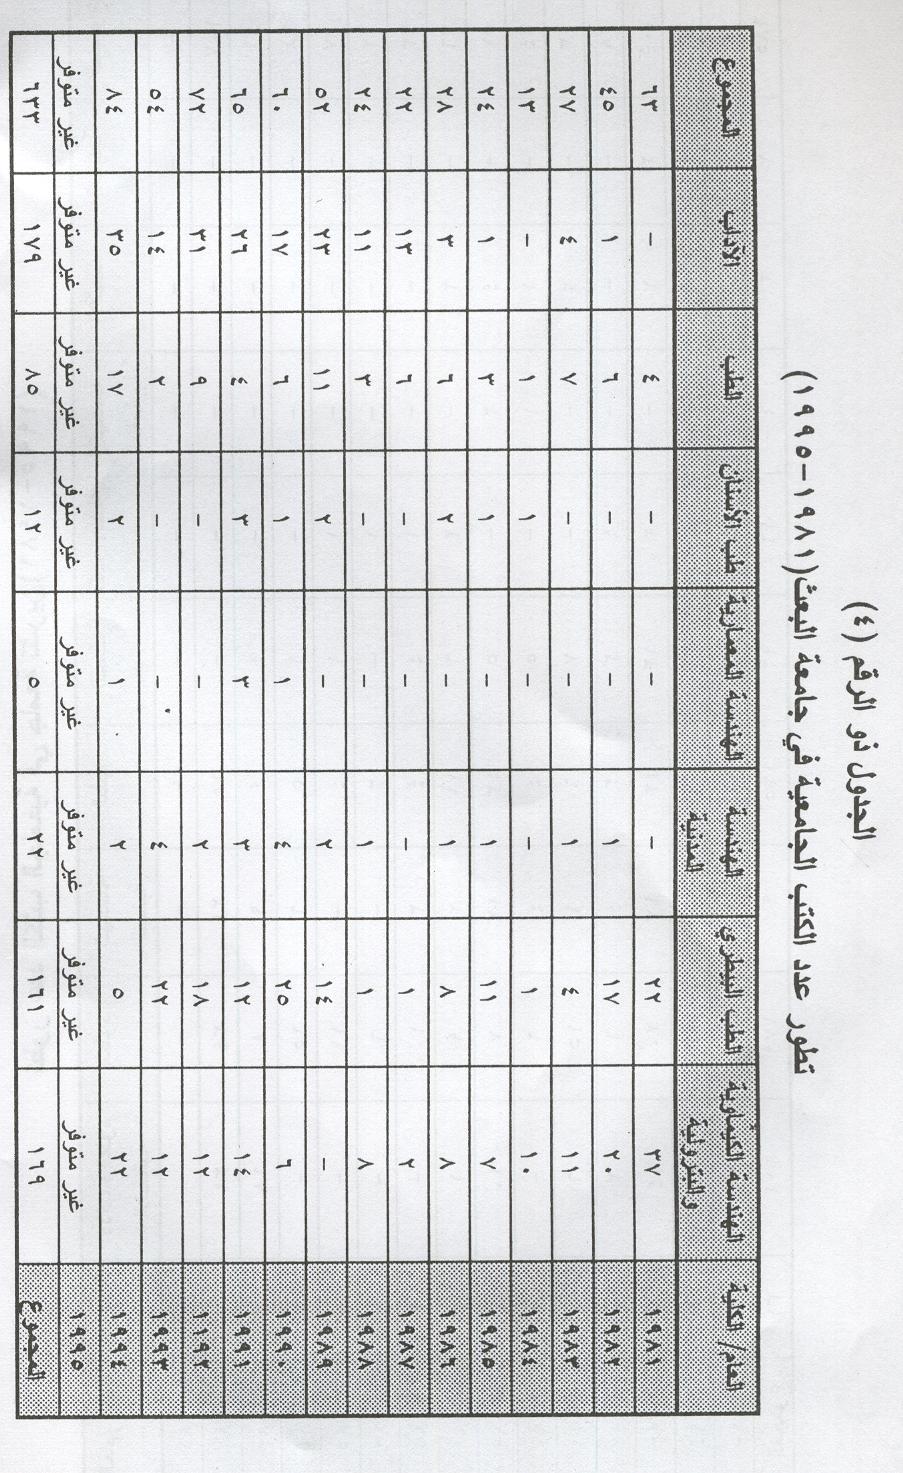 الجدول ذو الرقم (٤)
تطور عدد الكتب الجامعية في جامعة البعث (١٩٨١-١٩٩٥)
العام/ الكلية الهندسة الكيماوية والبترولية الطب البيطري الهندسة المدنية الهندسة المعمارية طب الأسنان الطب الآداب المجموع
١٩٨١ ٣٧ ٢٢ - - - ٤ - ٦٣
١٩٨٢ ٢٠ ١٧ ١ - - ٦ ١ ٤٥
١٩٨٣ ١١ ٤ ١ - - ٧ ٤ ٢٧
١٩٨٤ ١٠ ١ - - ١ ١ - ١٣
١٩٨٥ ٧ ١١ ١ - ١ ٣ ١ ٢٤
١٩٨٦ ٨ ٨ ١ - ٢ ٦ ٣ ٢٨
١٩٨٧ ٢ ١ - - - ٦ ١٣ ٢٢
١٩٨٨ ٨ ١ ١ - - ٣ ١١ ٢٤
١٩٨٩ - ١٤ ٢ - ٢ ١١ ٢٣ ٥٢
١٩٩٠ ٦ ٢٥ ٤ ١ ١ ٦ ١٧ ٦٠
١٩٩١ ١٤ ١٢ ٣ ٣ ٣ ٤ ٢٦ ٦٥
١١٩٢ ١٢ ١٨ ٢ - - ٩ ٣١ ٧٢
١٩٩٣ ١٢ ٢٢ ٤ - - ٢ ١٤ ٥٤
١٩٩٤ ٢٢ ٥ ٢ ١ ٢ ١٧ ٣٥ ٨٤
١٩٩٥ غير متوفر غير متوفر غير متوفر غير متوفر غير متوفر غير متوفر غير متوفر غير متوفر
المجموع ١٦٩ ١٦١ ٢٢ ٥ ١٢ ٨٥ ١٧٩ ٦٣٣